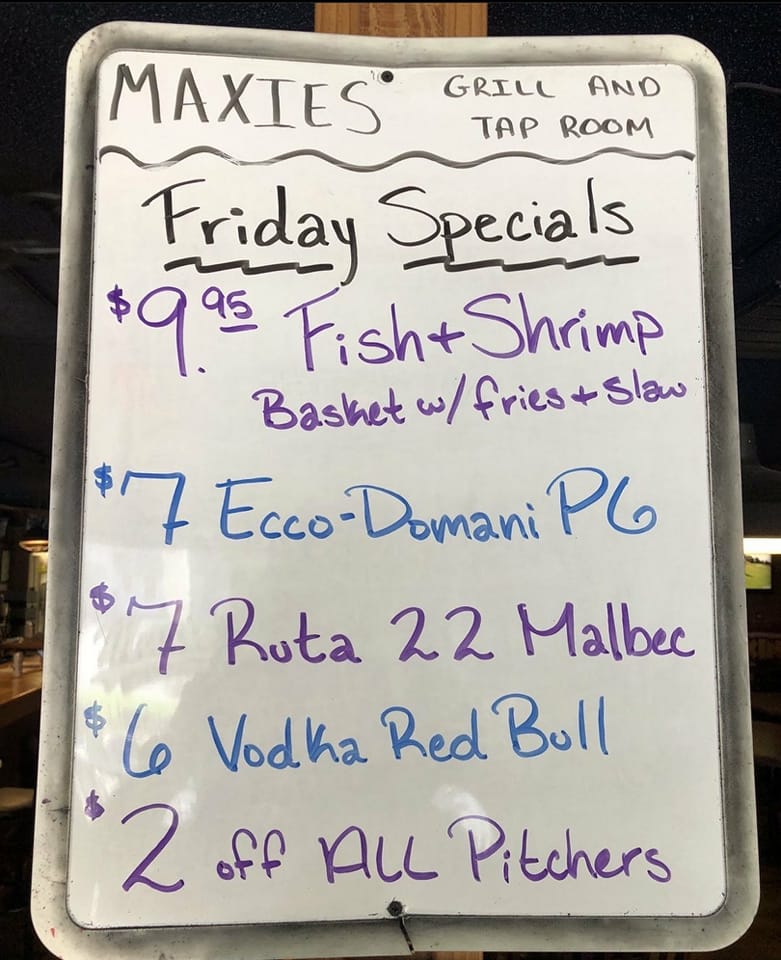 MAXIES GRILL AND
TAP ROOM
Friday Specials
$9.95 Fish + Shrimp
Basket w/ fries + Slaw
$7 Ecco-Domani PG
$7 Ruta 22 Malbec
$6 Vodka Red Bull
$2 off ALL Pitchers